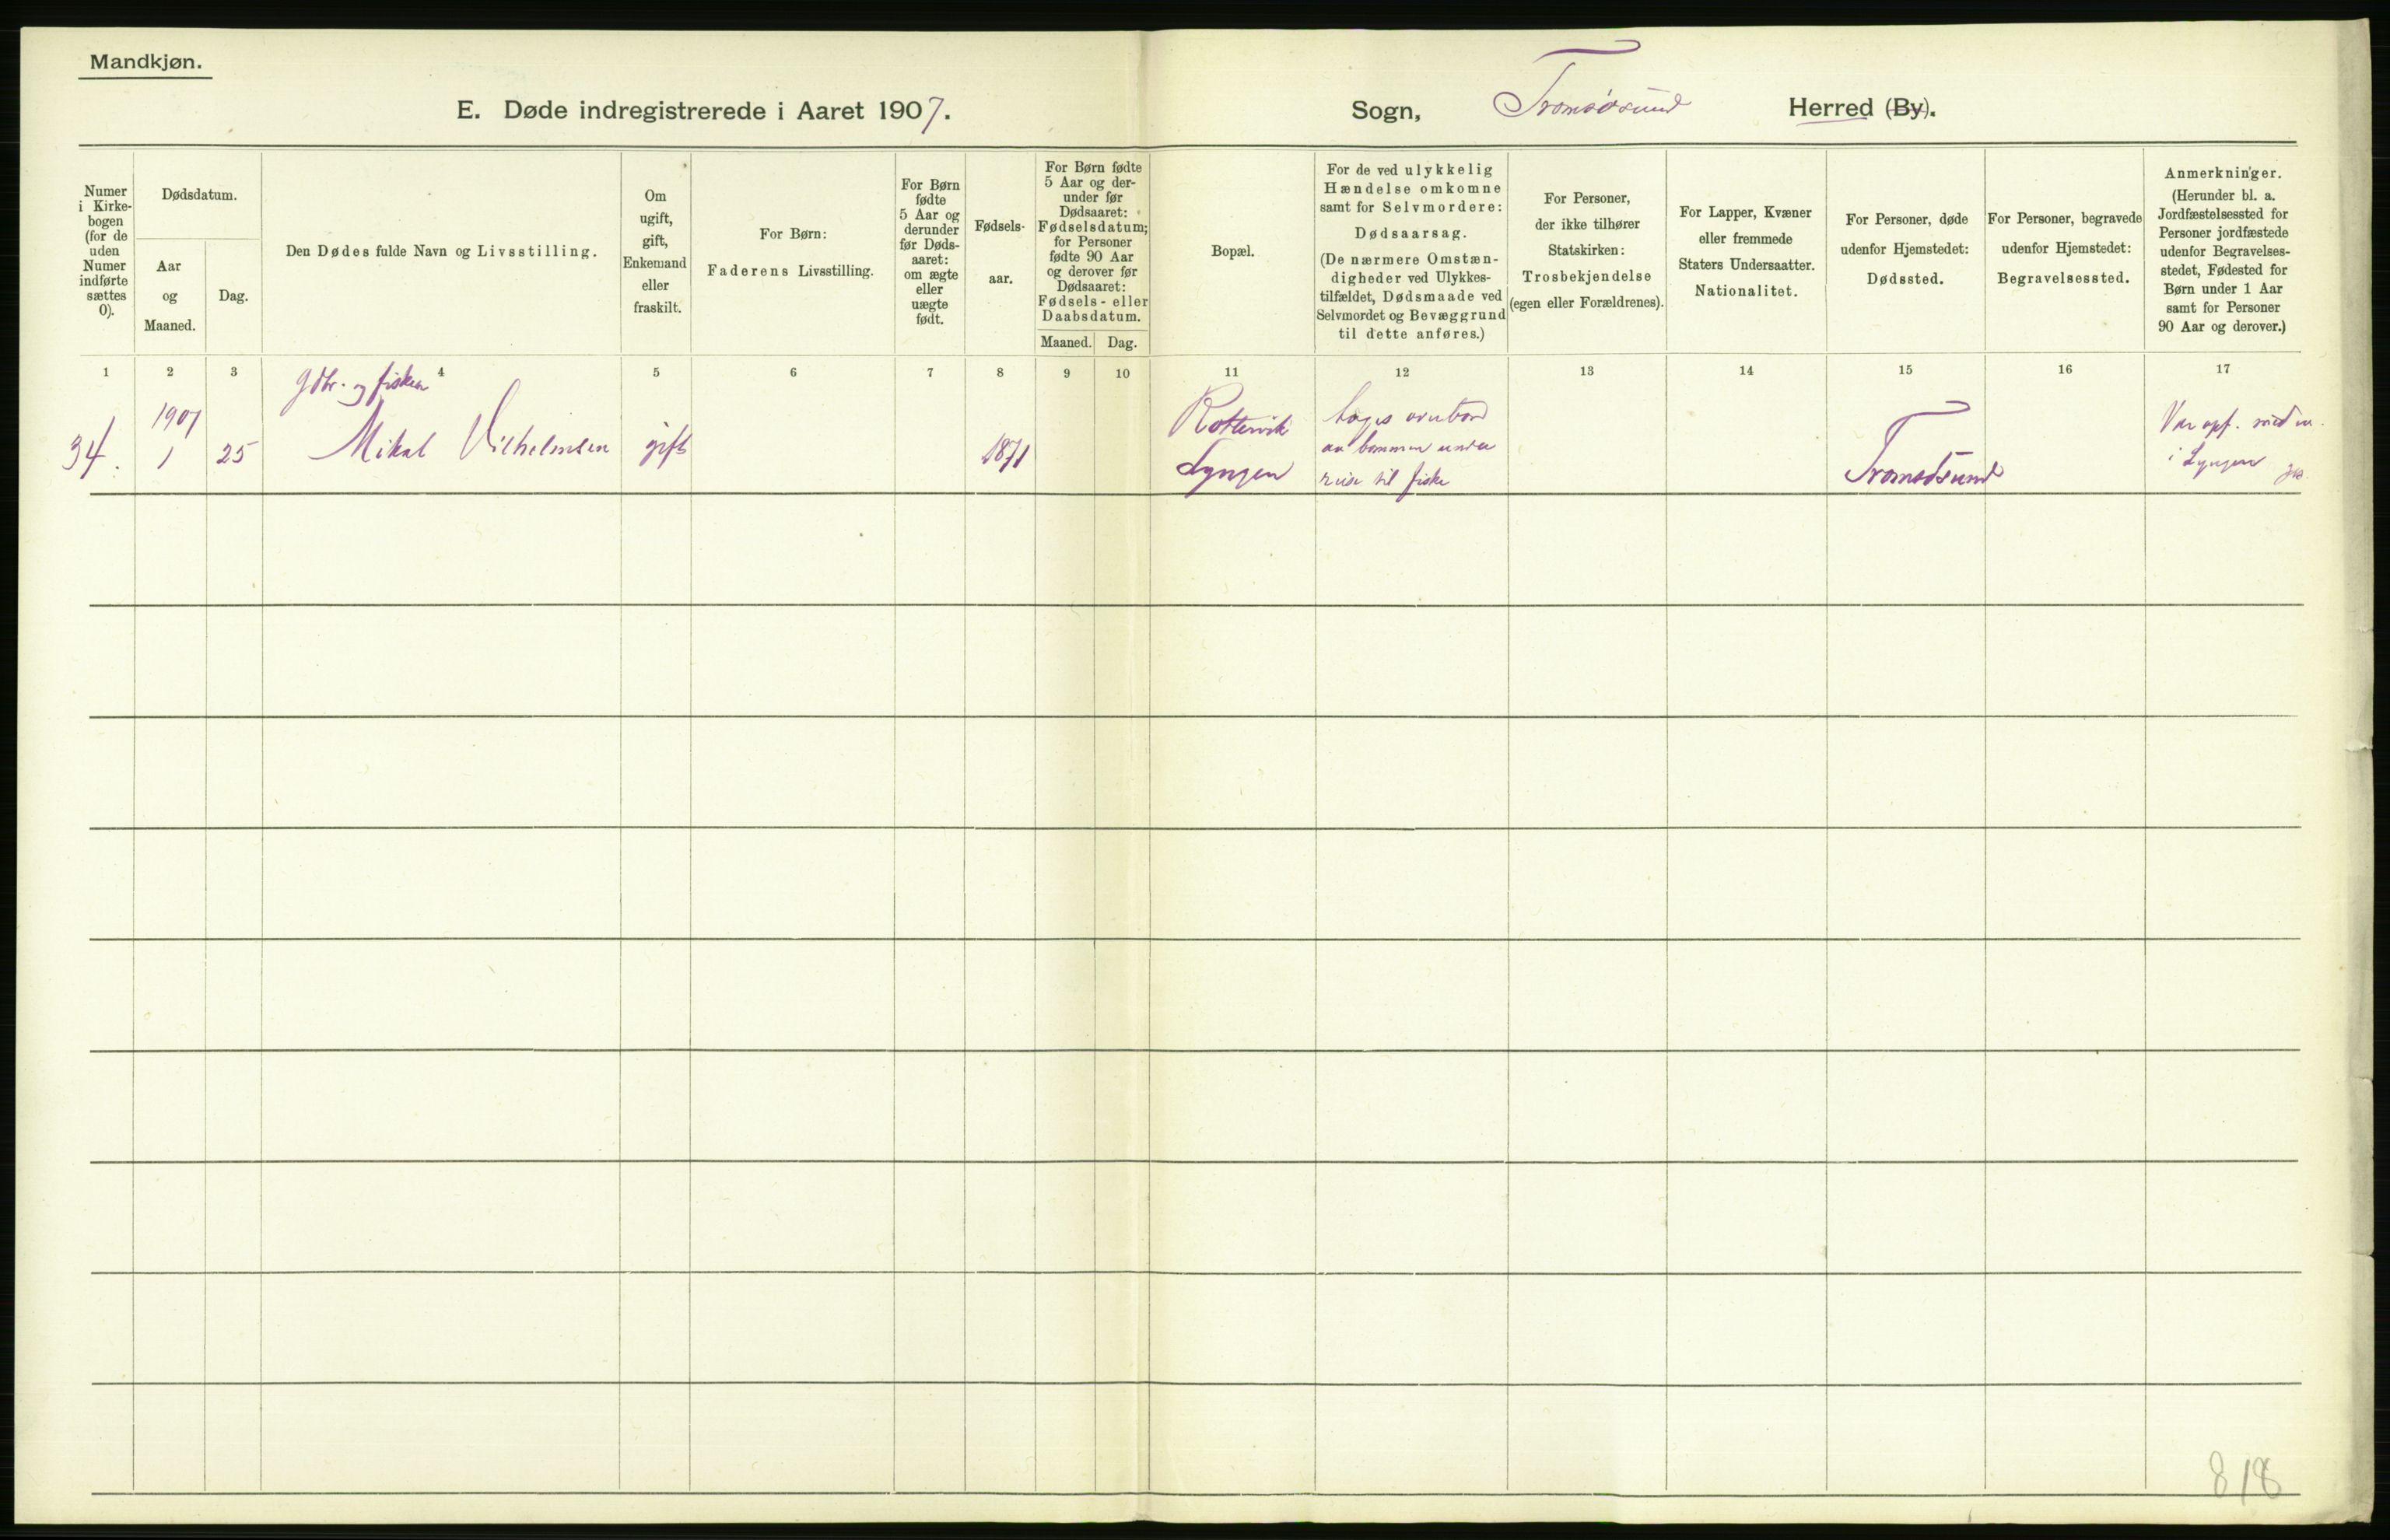 Mandkjøn.
E. Døde indregistrerede i Aaret 1907.
Sogn, Tromsøsund Herred (By).
Numer
i Kirke-
bogen
(for de
uden
Numer
indførte
sættes
0).
Dødsdatum.
Aar
og
Maaned.
Dag.
Den Dødes fulde Navn og Livsstilling.
Om
ugift,
gift,
Enkemand
eller
fraskilt.
For Børn:
Faderens Livsstilling.
For Børn
fødte
5 Aar og
derunder
før Døds-
aaret:
om ægte
eller
uægte
født.
Fødsels-
aar.
For Børn fødte
5 Aar og der-
under før
Dødsaaret:
Fødselsdatum;
for Personer
fødte 90 Aar
og derover før
Dødsaaret:
Fødsels- eller
Daabsdatum.
Maaned. Dag.
Bopæl.
For de ved ulykkelig
Hændelse omkomne
samt for Selvmordere:
Dødsaarsag.
(De nærmere Omstæn-
digheder ved Ulykkes-
tilfældet, Dødsmaade ved
Selvmordet og Bevæggrund
til dette anføres.)
For Personer,
der ikke tilhører
Statskirken:
Trosbekjendelse
(egen eller Forældrenes).
For Lapper, Kvæner
eller fremmede
Staters Undersaatter.
Nationalitet.
For Personer, døde
udenfor Hjemstedet:
Dødssted.
For Personer, begravede
udenfor Hjemstedet:
Begravelsessted.
Anmerkninger.
(Herunder bl. a.
Jordfæstelsessted for
Personer jordfæstede
udenfor Begravelses-
stedet, Fødested for
Børn under 1 Aar
samt for Personer
90 Aar og derover.)
1 2 3 4 5 6 7 8 9 10 11 12 13 14 15 16 17
34.
1907
1
25
Gdbr. og fisker
Mikal Vilhelmsen
gift
1871
Rottenvik
Lyngen
toges overbord
av bommen under
reise til fiske
Tromsøsund
Var opf.
i Lyngen
818